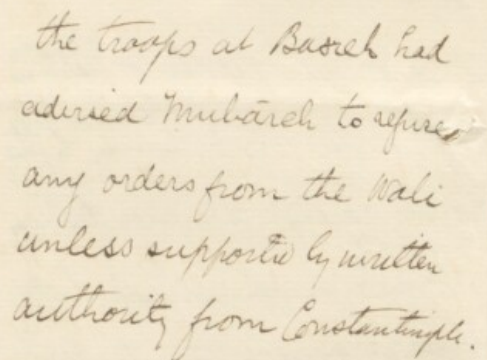 the troops at Basreh had
advised Mubárek to refuse
any orders from the Wali
unless supported by written
authority from Constantinople.